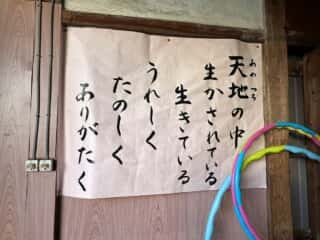 天地の中
あめ つち
生かされている
生きている
うれしく
たのしく
ありがたく